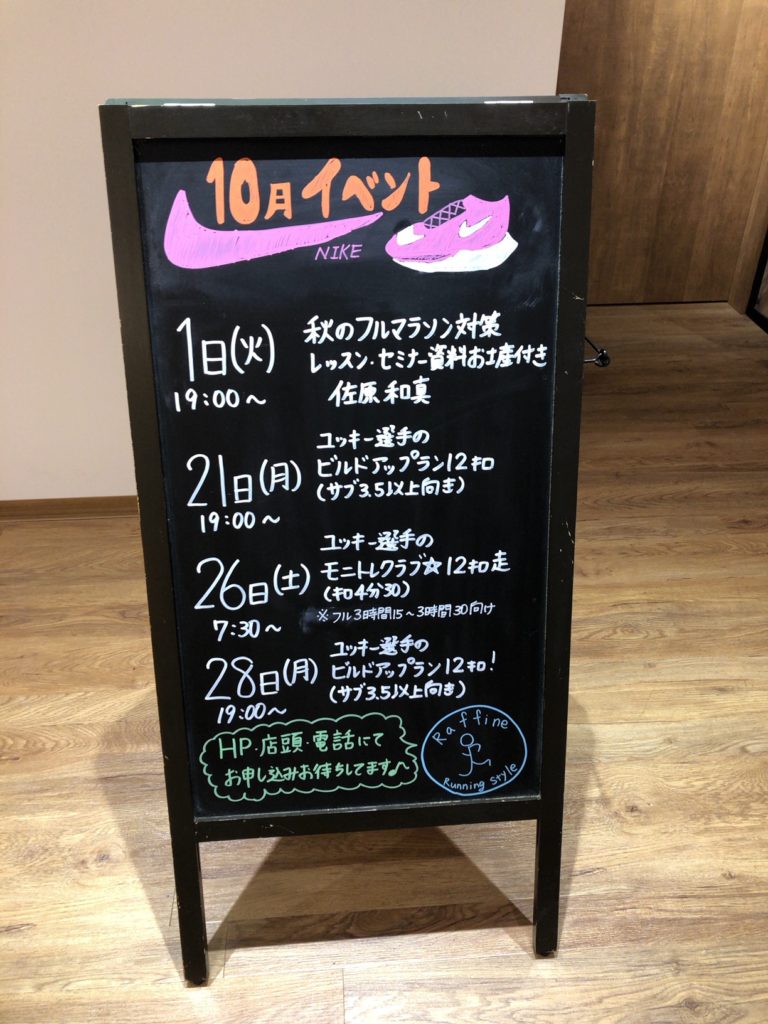 10月イベント
NIKE
1日(火)
19:00〜
秋のフルマラソン対策
レッスン・セミナー資料お土産付き
佐原和真
21日(月)
19:00〜
ユッキー選手の
ビルドアップラン12キロ
(サブ3.5以上向き)
26日(土)
7:30〜
ユッキー選手の
モニトレクラブ☆12キロ走
(キロ4分30)
※フル3時間15〜3時間30向け
28日(月)
19:00〜
ユッキー選手の
ビルドアップラン12キロ!
(サブ3.5以上向き)
HP・店頭・電話にて
お申し込みお待ちしてます♪
Raffine
Running Style